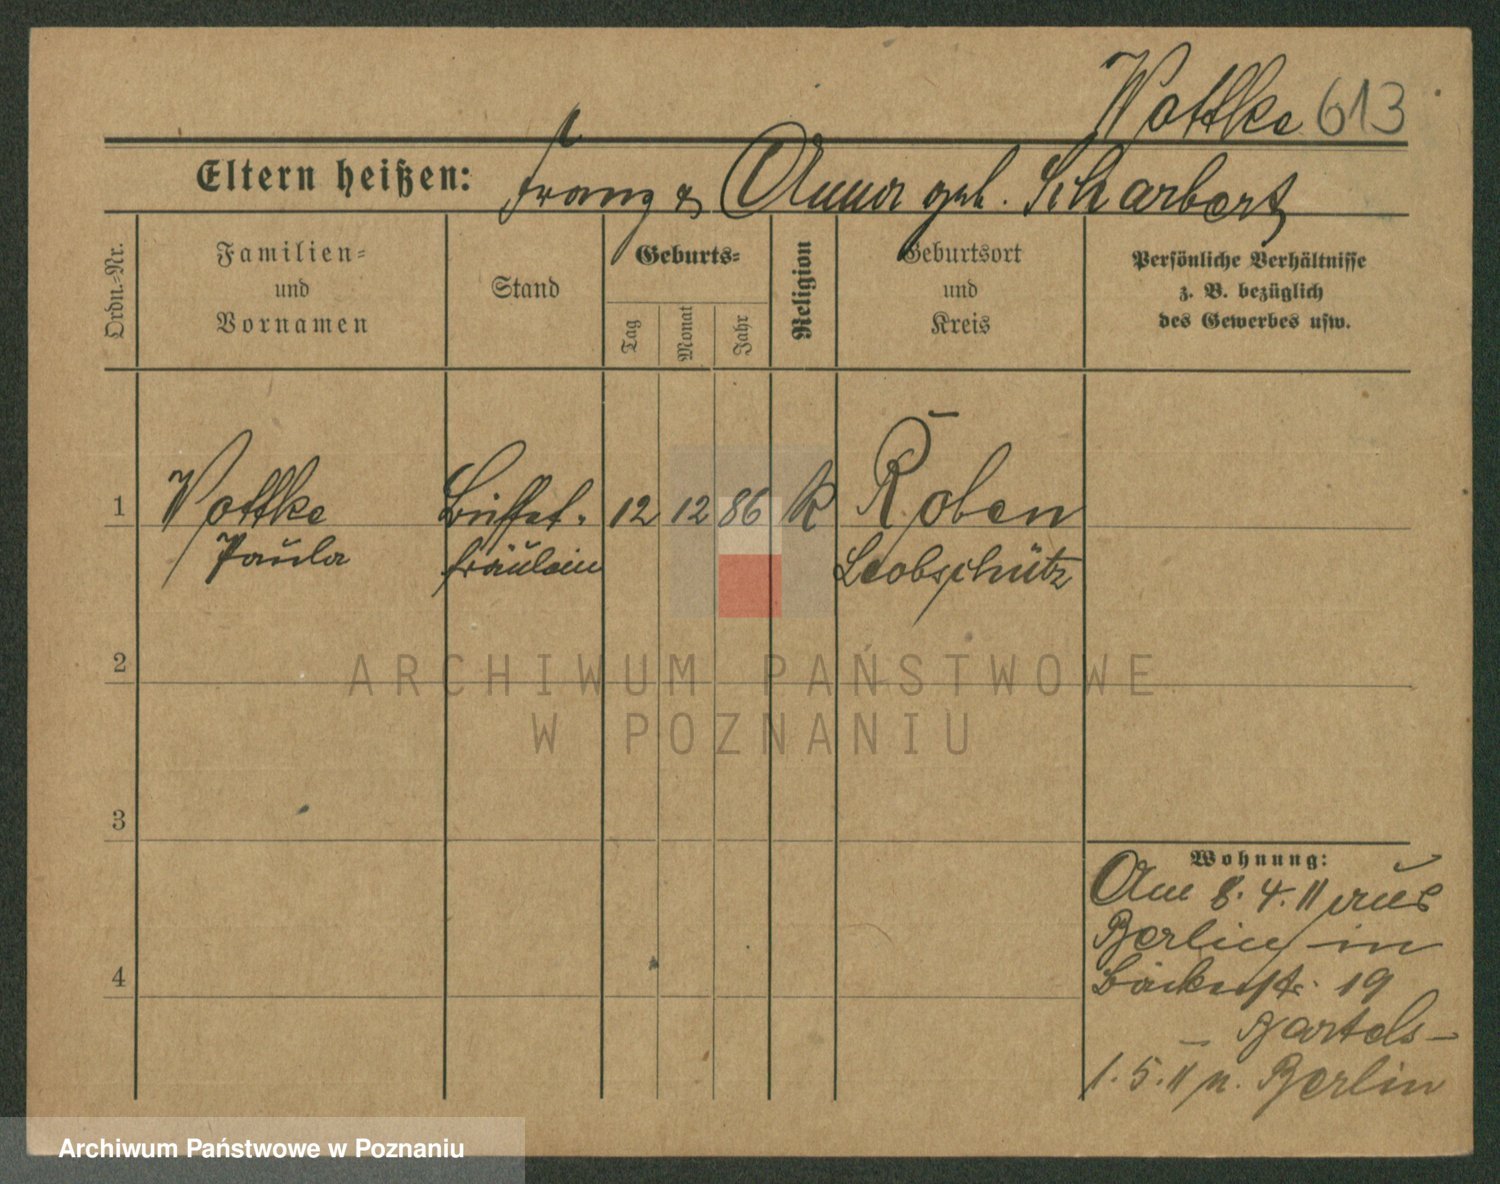 Wottke 613
Eltern heißen: Franz & Anna geb. Scharbert
Ordn.-Nr.
Familien-
und
Vornamen
Stand
Geburts-
Tag
Monat
Jahr
Religion
Geburtsort
und
Kreis
Persönliche Verhältnisse
z. B. bezüglich
des Gewerbes usw.
1 Wottke Büffet- 12 12 86 k Roben
Paula fräulein Leobschütz
2
ARCHIWUM PAŃSTWOWE
W POZNANIU
3
Wohnung:
Am 8. 4. 11 aus
Berlin in
Bäckerstr. 19
4
1. 5. 11 n. Berlin
Archiwum Państwowe w Poznaniu